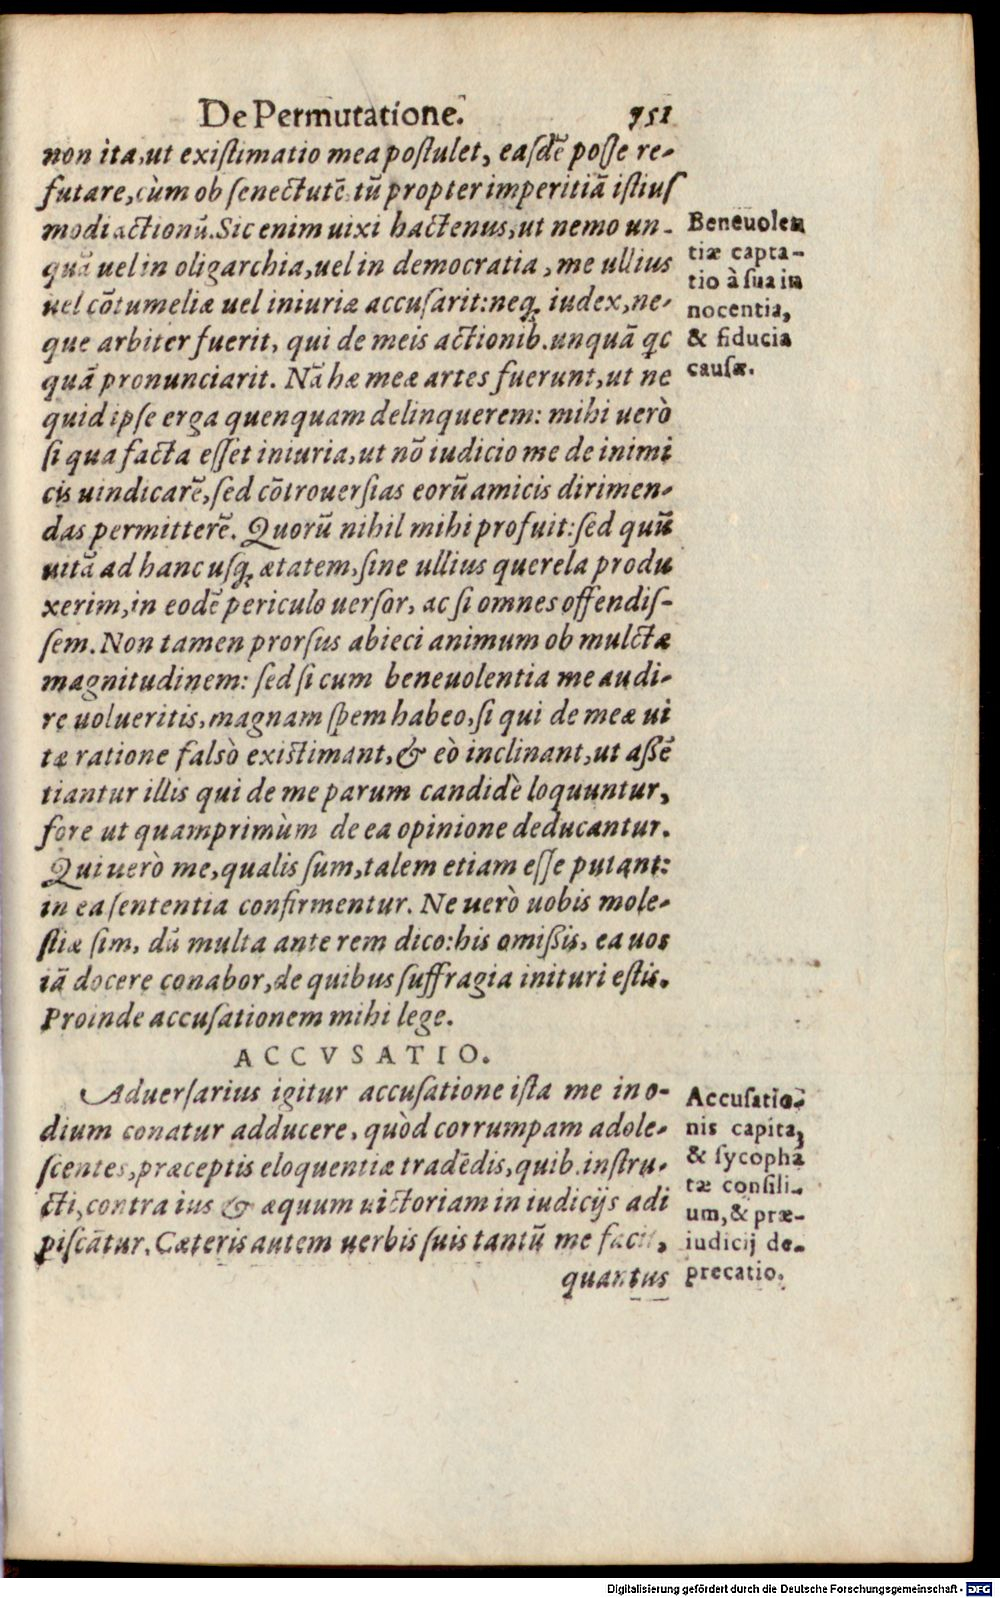 De Permutatione. 751
non ita, ut existimatio mea postulet, easdē posse re-
futare, cùm ob senectutē tū propter imperitiā istius
modi actionū. Sic enim uixi hactenus, ut nemo un-
quā uel in oligarchia, uel in democratia, me ullius
uel cōtumeliæ uel iniuriæ accusarit: neq; iudex, ne-
que arbiter fuerit, qui de meis actionib. unquā qc
quā pronunciarit. Nā hæ meæ artes fuerunt, ut ne
quid ipse erga quenquam delinquerem: mihi uerò
si qua facta esset iniuria, ut nō iudicio me de inimi
cis uindicarē, sed cōtrouersias eorū amicis dirimen-
das permitterē. Quorū nihil mihi profuit: sed quū
uitā ad hanc usq; ætatem, sine ullius querela produ
xerim, in eodē periculo uersor, ac si omnes offendis-
sem. Non tamen prorsus abieci animum ob mulctæ
magnitudinem: sed si cum beneuolentia me audi-
re uolueritis, magnam spem habeo, si qui de meæ ui
tæ ratione falsò existimant, & eò inclinant, ut assē
tiantur illis qui de me parum candidè loquuntur,
fore ut quamprimùm de ea opinione deducantur.
Qui uerò me, qualis sum, talem etiam esse putant:
in ea sententia confirmentur. Ne uerò uobis mole-
stiæ sim, dū multa ante rem dico: his omissis, ea uos
iā docere conabor, de quibus suffragia inituri estis.
Proinde accusationem mihi lege.
ACCVSATIO.
Aduersarius igitur accusatione ista me in o-
dium conatur adducere, quòd corrumpam adole-
scentes, præceptis eloquentiæ tradēdis, quib. instru-
cti, contra ius & æquum uictoriam in iudicijs adi
piscātur. Cæteris autem uerbis suis tantū me facit,
quantus
Beneuolen
tiæ capta-
tio à sua in
nocentia,
& fiducia
causæ.
Accusatio-
nis capita,
& sycophā
tæ consili-
um, & præ-
iudicij de-
precatio.
Digitalisierung gefördert durch die Deutsche Forschungsgemeinschaft - DFG